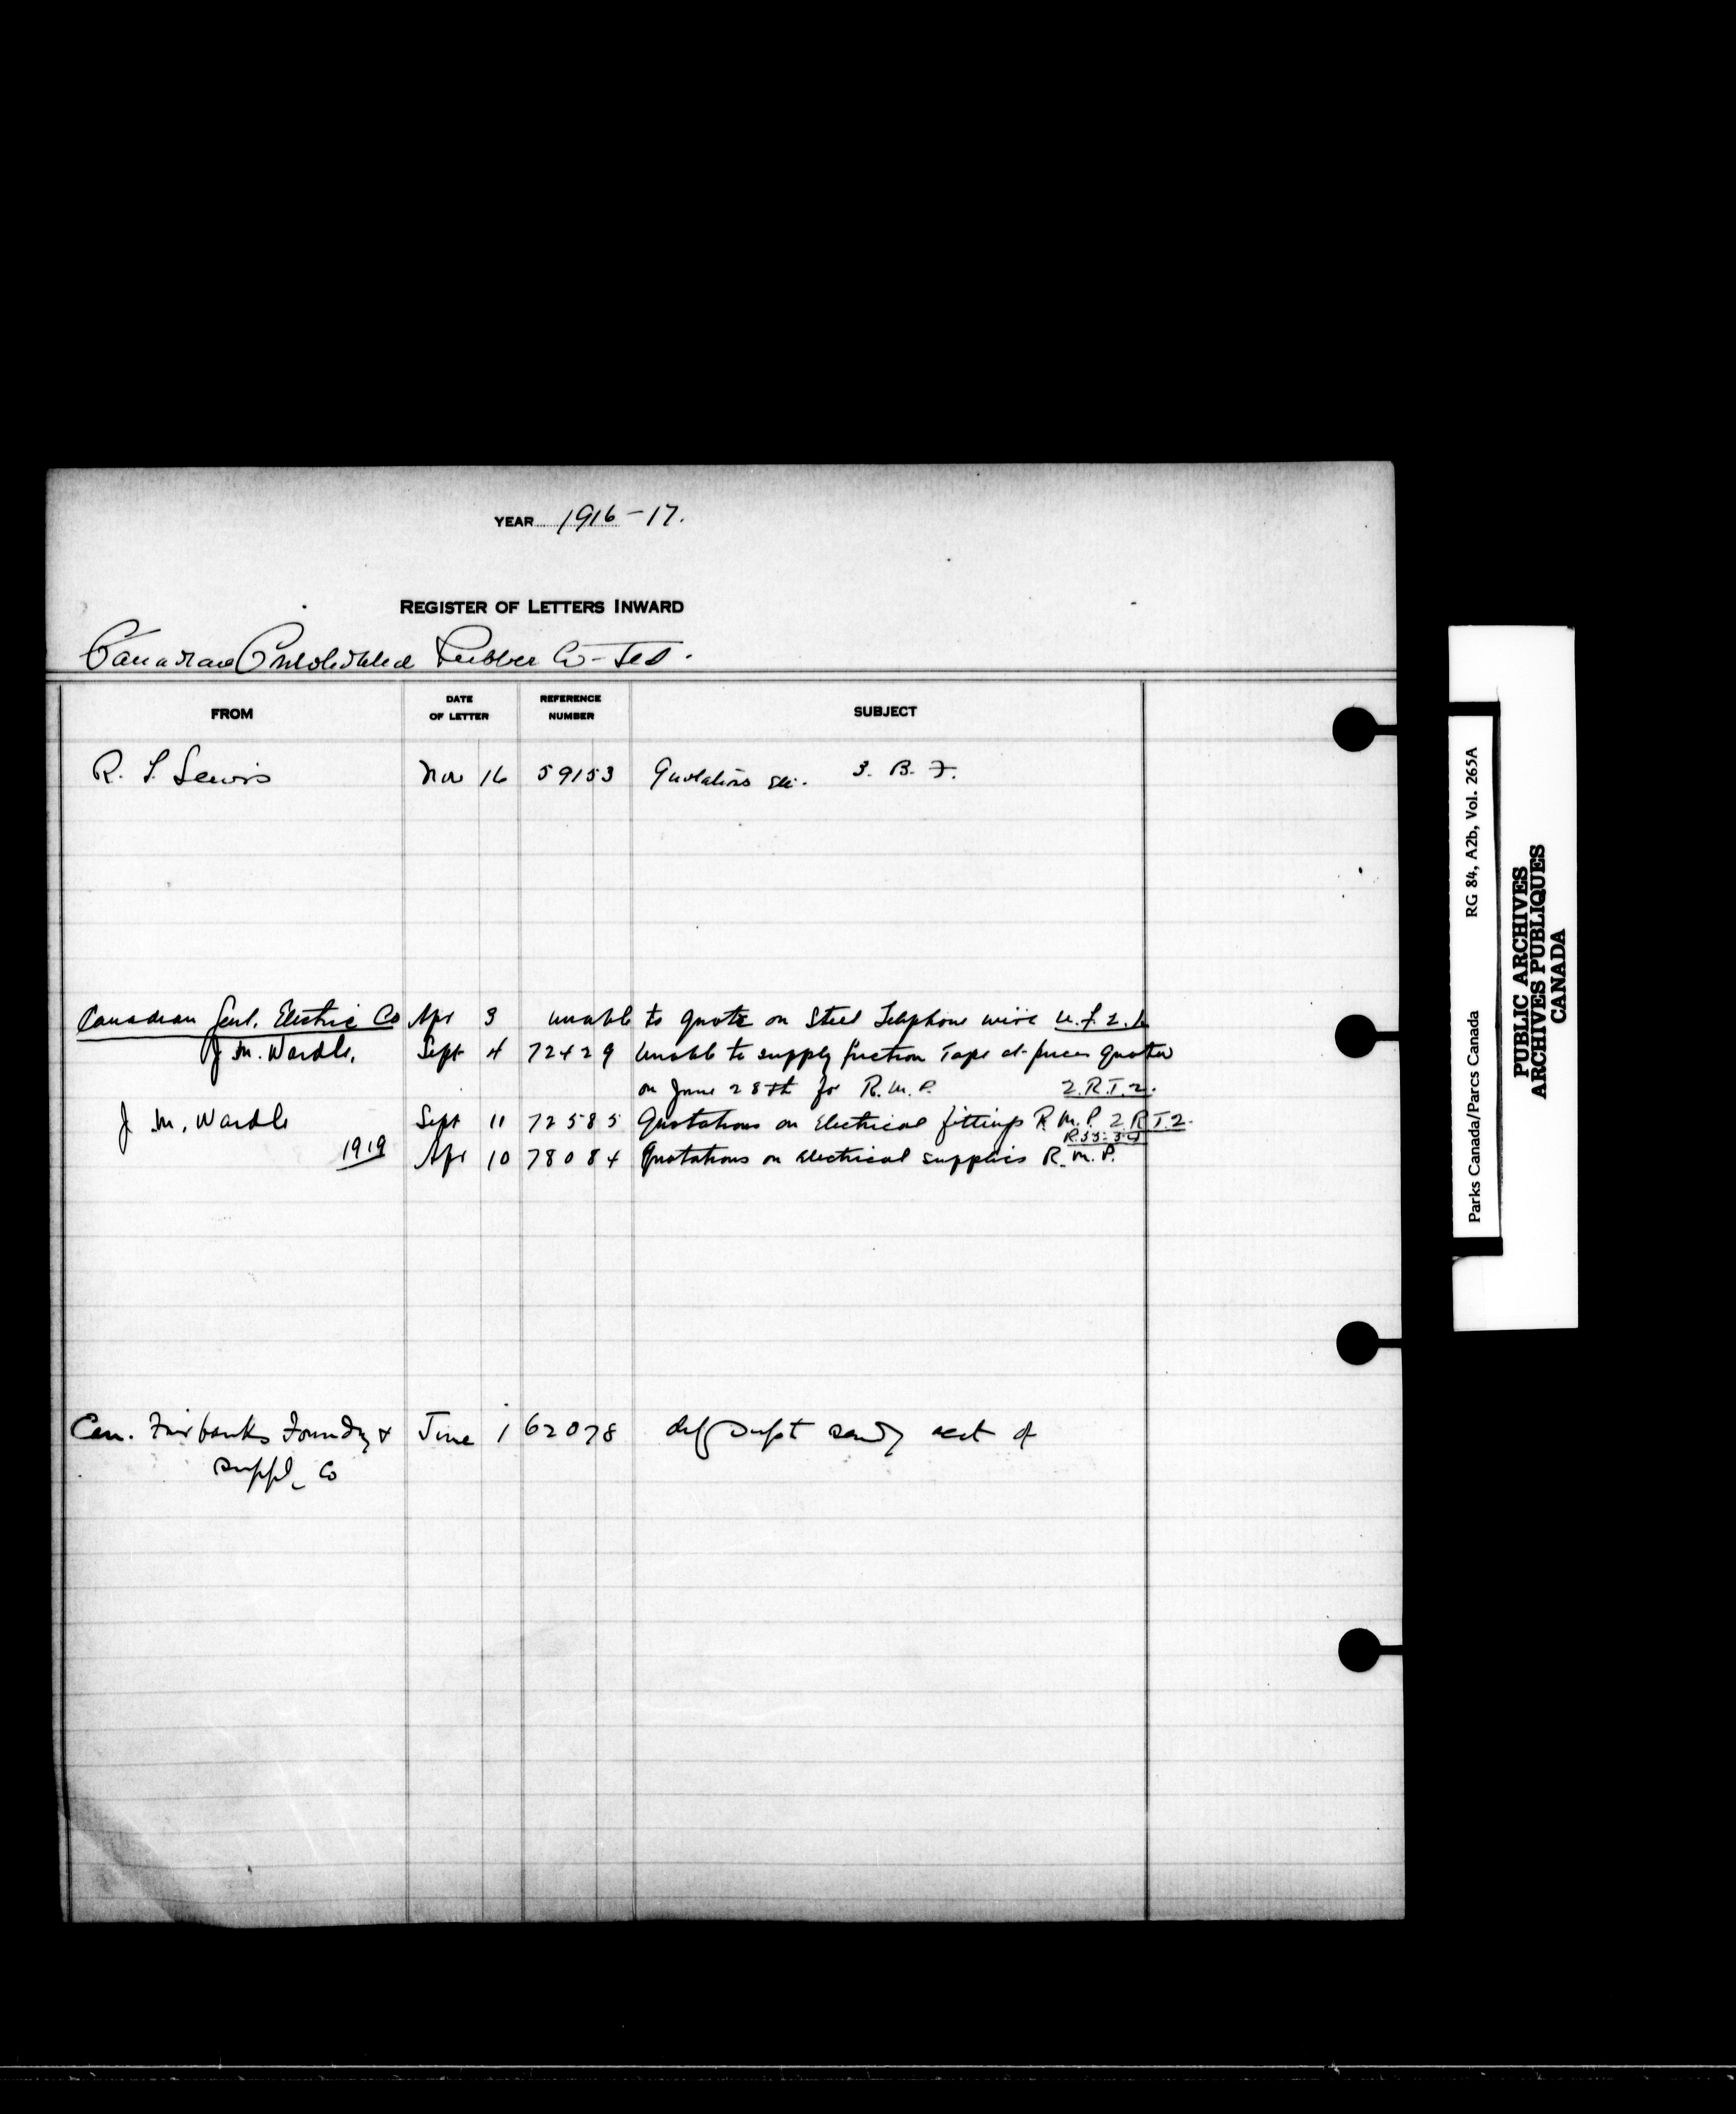 YEAR 1916-17.
REGISTER OF LETTERS INWARD
Canadian Consolidated Rubber Co - Ltd.
FROM DATE OF LETTER REFERENCE NUMBER SUBJECT
R. S. Lewis Nov 16 59153 Quotations etc. 3. B. F.
Canadian Genl. Electric Co Apr 3 unable to quote on Steel Telephone wire U.F.2.
J. M. Wardle, Sept 4 72429 Unable to supply friction Tape at prices quoted
on June 28th for R.M.P. 2.R.T.2.
J M. Wardle Sept 11 72585 Quotations on Electrical fittings R.M.P. 2.R.T.2.
R.55-
1919 Apr 10 78084 Quotations on electrical supplies R.M.P.
Can. Fairbanks Foundry & June 1 62078 Supt sendg acct of
Supply Co
Parks Canada/Parcs Canada RG 84, A2b, Vol. 265A
PUBLIC ARCHIVES
ARCHIVES PUBLIQUES
CANADA